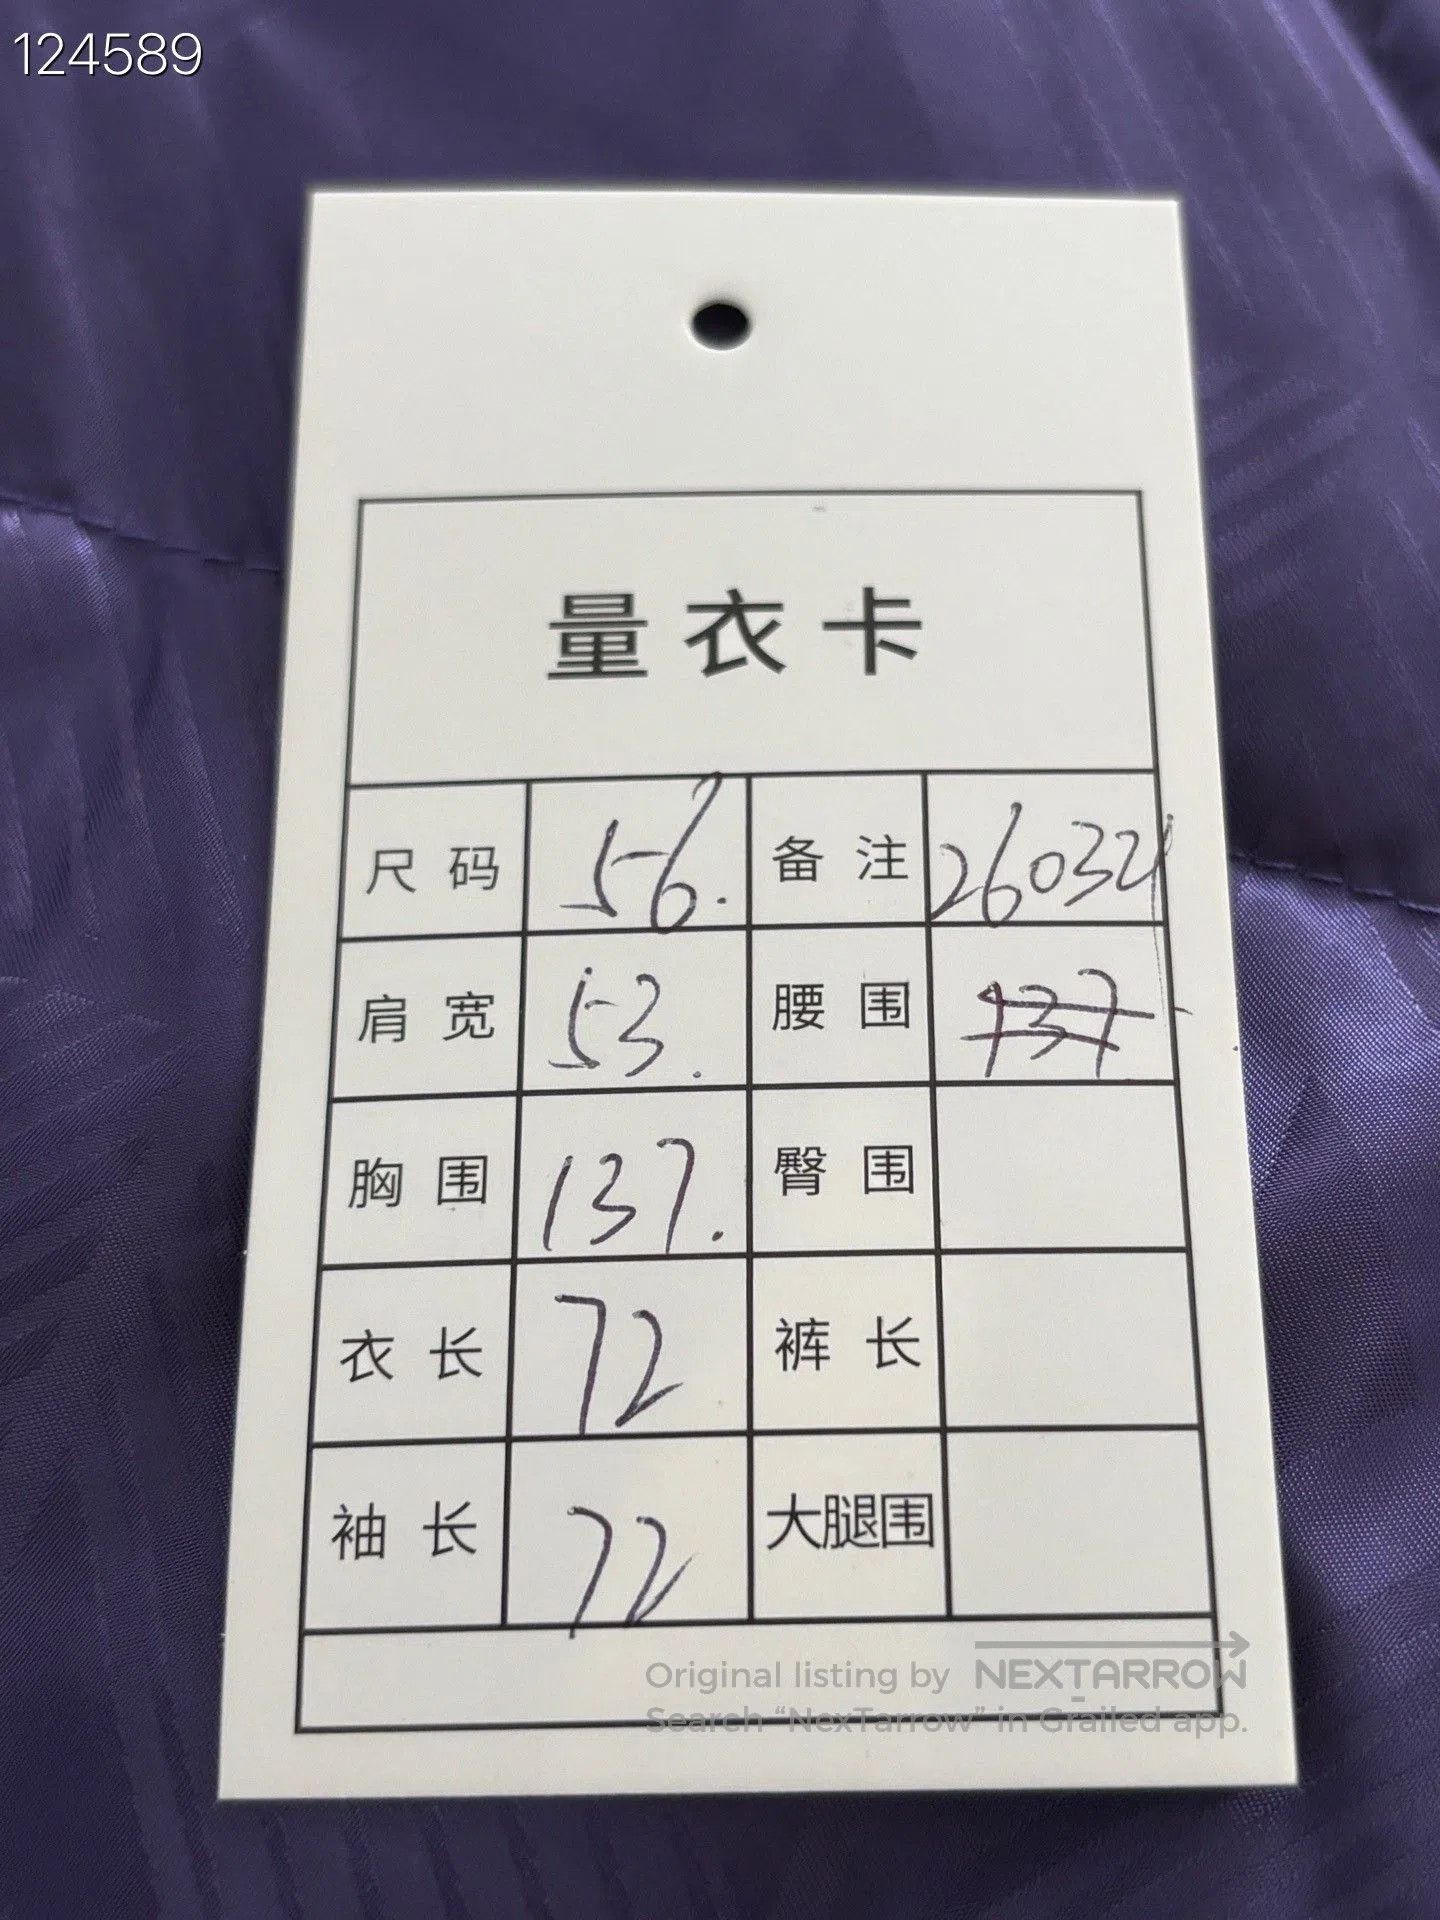 124589
量衣卡
尺码 56. 备注 260321
肩宽 53. 腰围 137
胸围 137. 臀围
衣长 72 裤长
袖长 72 大腿围
Original listing by NEXTARROW
Search “NexTarrow” in Grailed app.